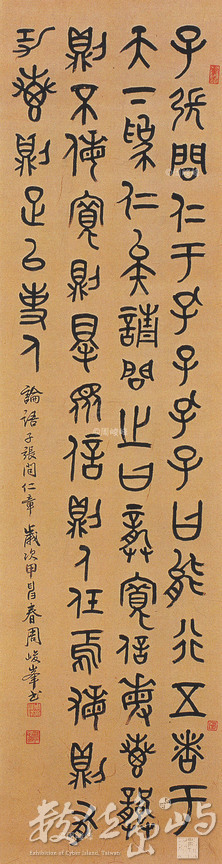 子張問仁于孔子孔子曰能行五者于
天下為仁矣請問之曰恭寬信敏惠恭
則不侮寬則得眾信則人任焉敏則有
功惠則足以使人
論語子張問仁章 歲次甲春周峻峯書
數位島嶼
Exhibition of Cyber Island, Taiwan